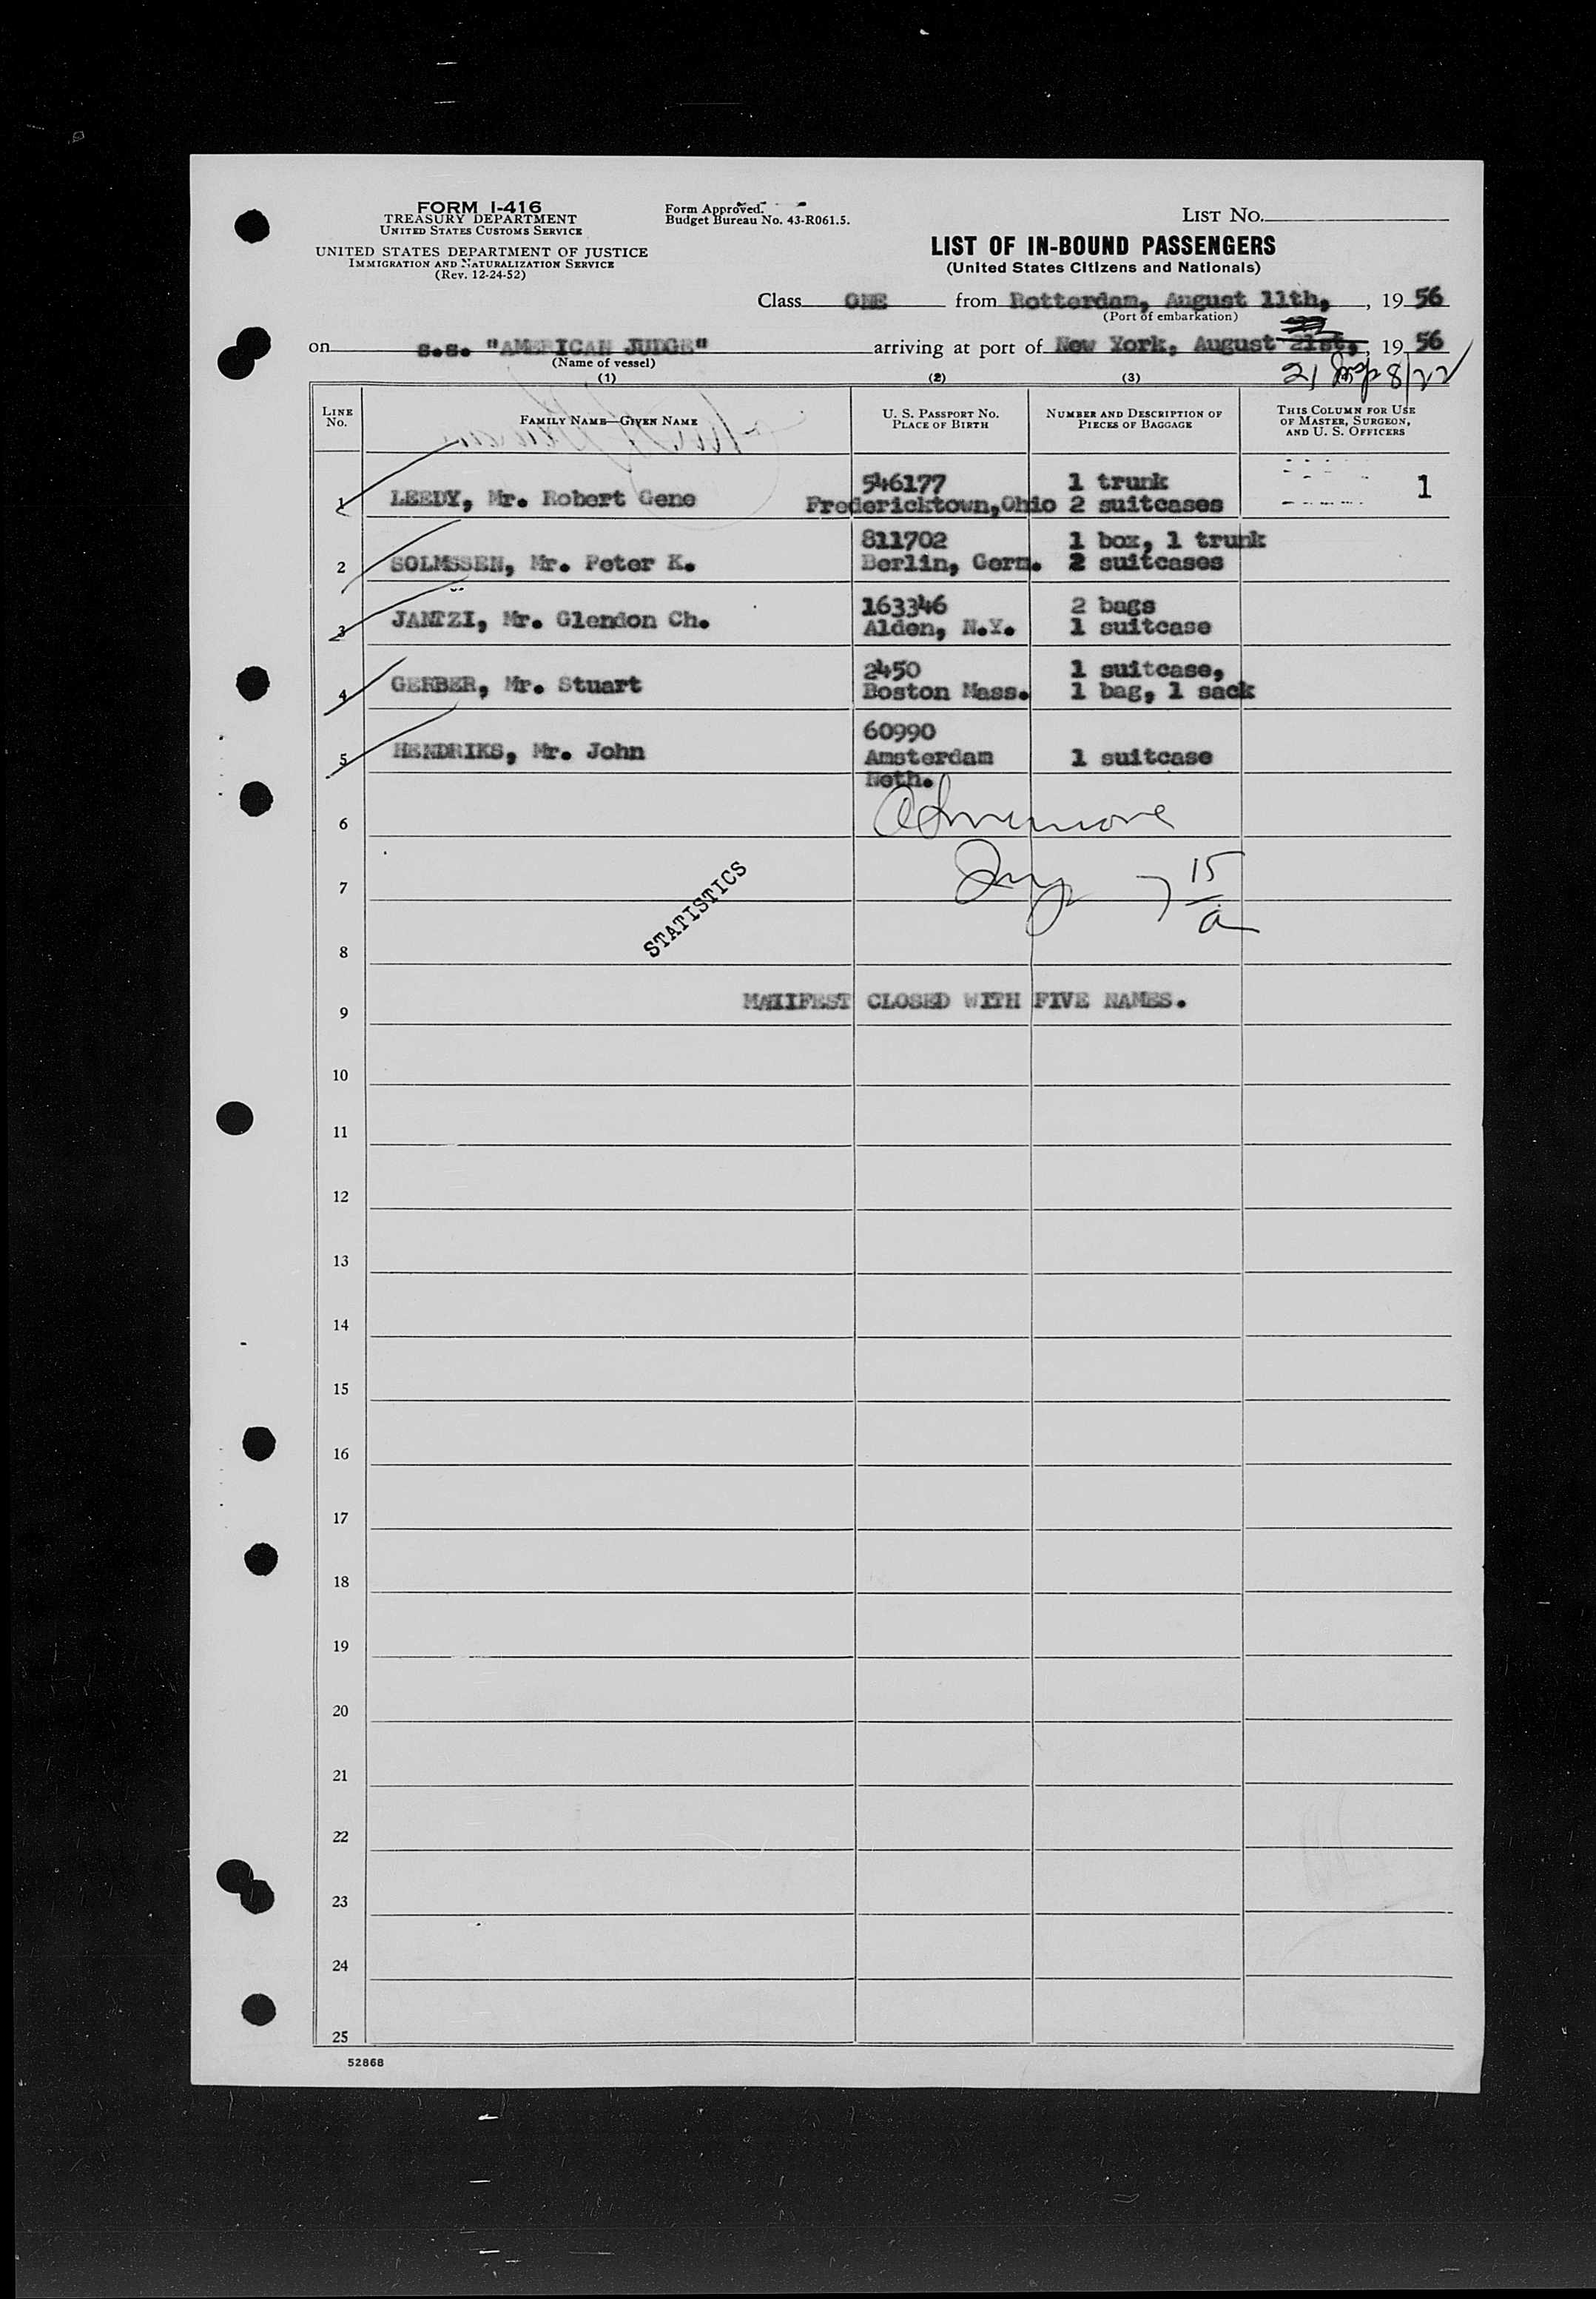 FORM I-416
TREASURY DEPARTMENT
UNITED STATES CUSTOMS SERVICE
UNITED STATES DEPARTMENT OF JUSTICE
IMMIGRATION AND NATURALIZATION SERVICE
(Rev. 12-24-52)
Form Approved.
Budget Bureau No. 43-R061.5.
LIST NO.
LIST OF IN-BOUND PASSENGERS
(United States Citizens and Nationals)
Class ONE from Rotterdam, August 11th, , 19 56
(Port of embarkation)
on s.s. "AMERICAN JUDGE" arriving at port of New York, August 21st, , 19 56
(Name of vessel)
21 8/22
(1) (2) (3)
LINE NO. FAMILY NAME—GIVEN NAME U. S. PASSPORT NO. PLACE OF BIRTH NUMBER AND DESCRIPTION OF PIECES OF BAGGAGE THIS COLUMN FOR USE OF MASTER, SURGEON, AND U. S. OFFICERS
546177 1 trunk 1
1 LEEDY, Mr. Robert Gene Fredericktown,Ohio 2 suitcases
811702 1 box, 1 trunk
2 SOLMSSEN, Mr. Peter K. Berlin, Germ. 2 suitcases
163346 2 bags
3 JANTZI, Mr. Glendon Ch. Alden, N.Y. 1 suitcase
2450 1 suitcase,
4 GERBER, Mr. Stuart Boston Mass. 1 bag, 1 sack
60990
5 HENDRIKS, Mr. John Amsterdam 1 suitcase
Neth.
6
7 15
8 STATISTICS
MAXIFEST CLOSED WITH FIVE NAMES.
9
10
11
12
13
14
15
16
17
18
19
20
21
22
23
24
25
52868